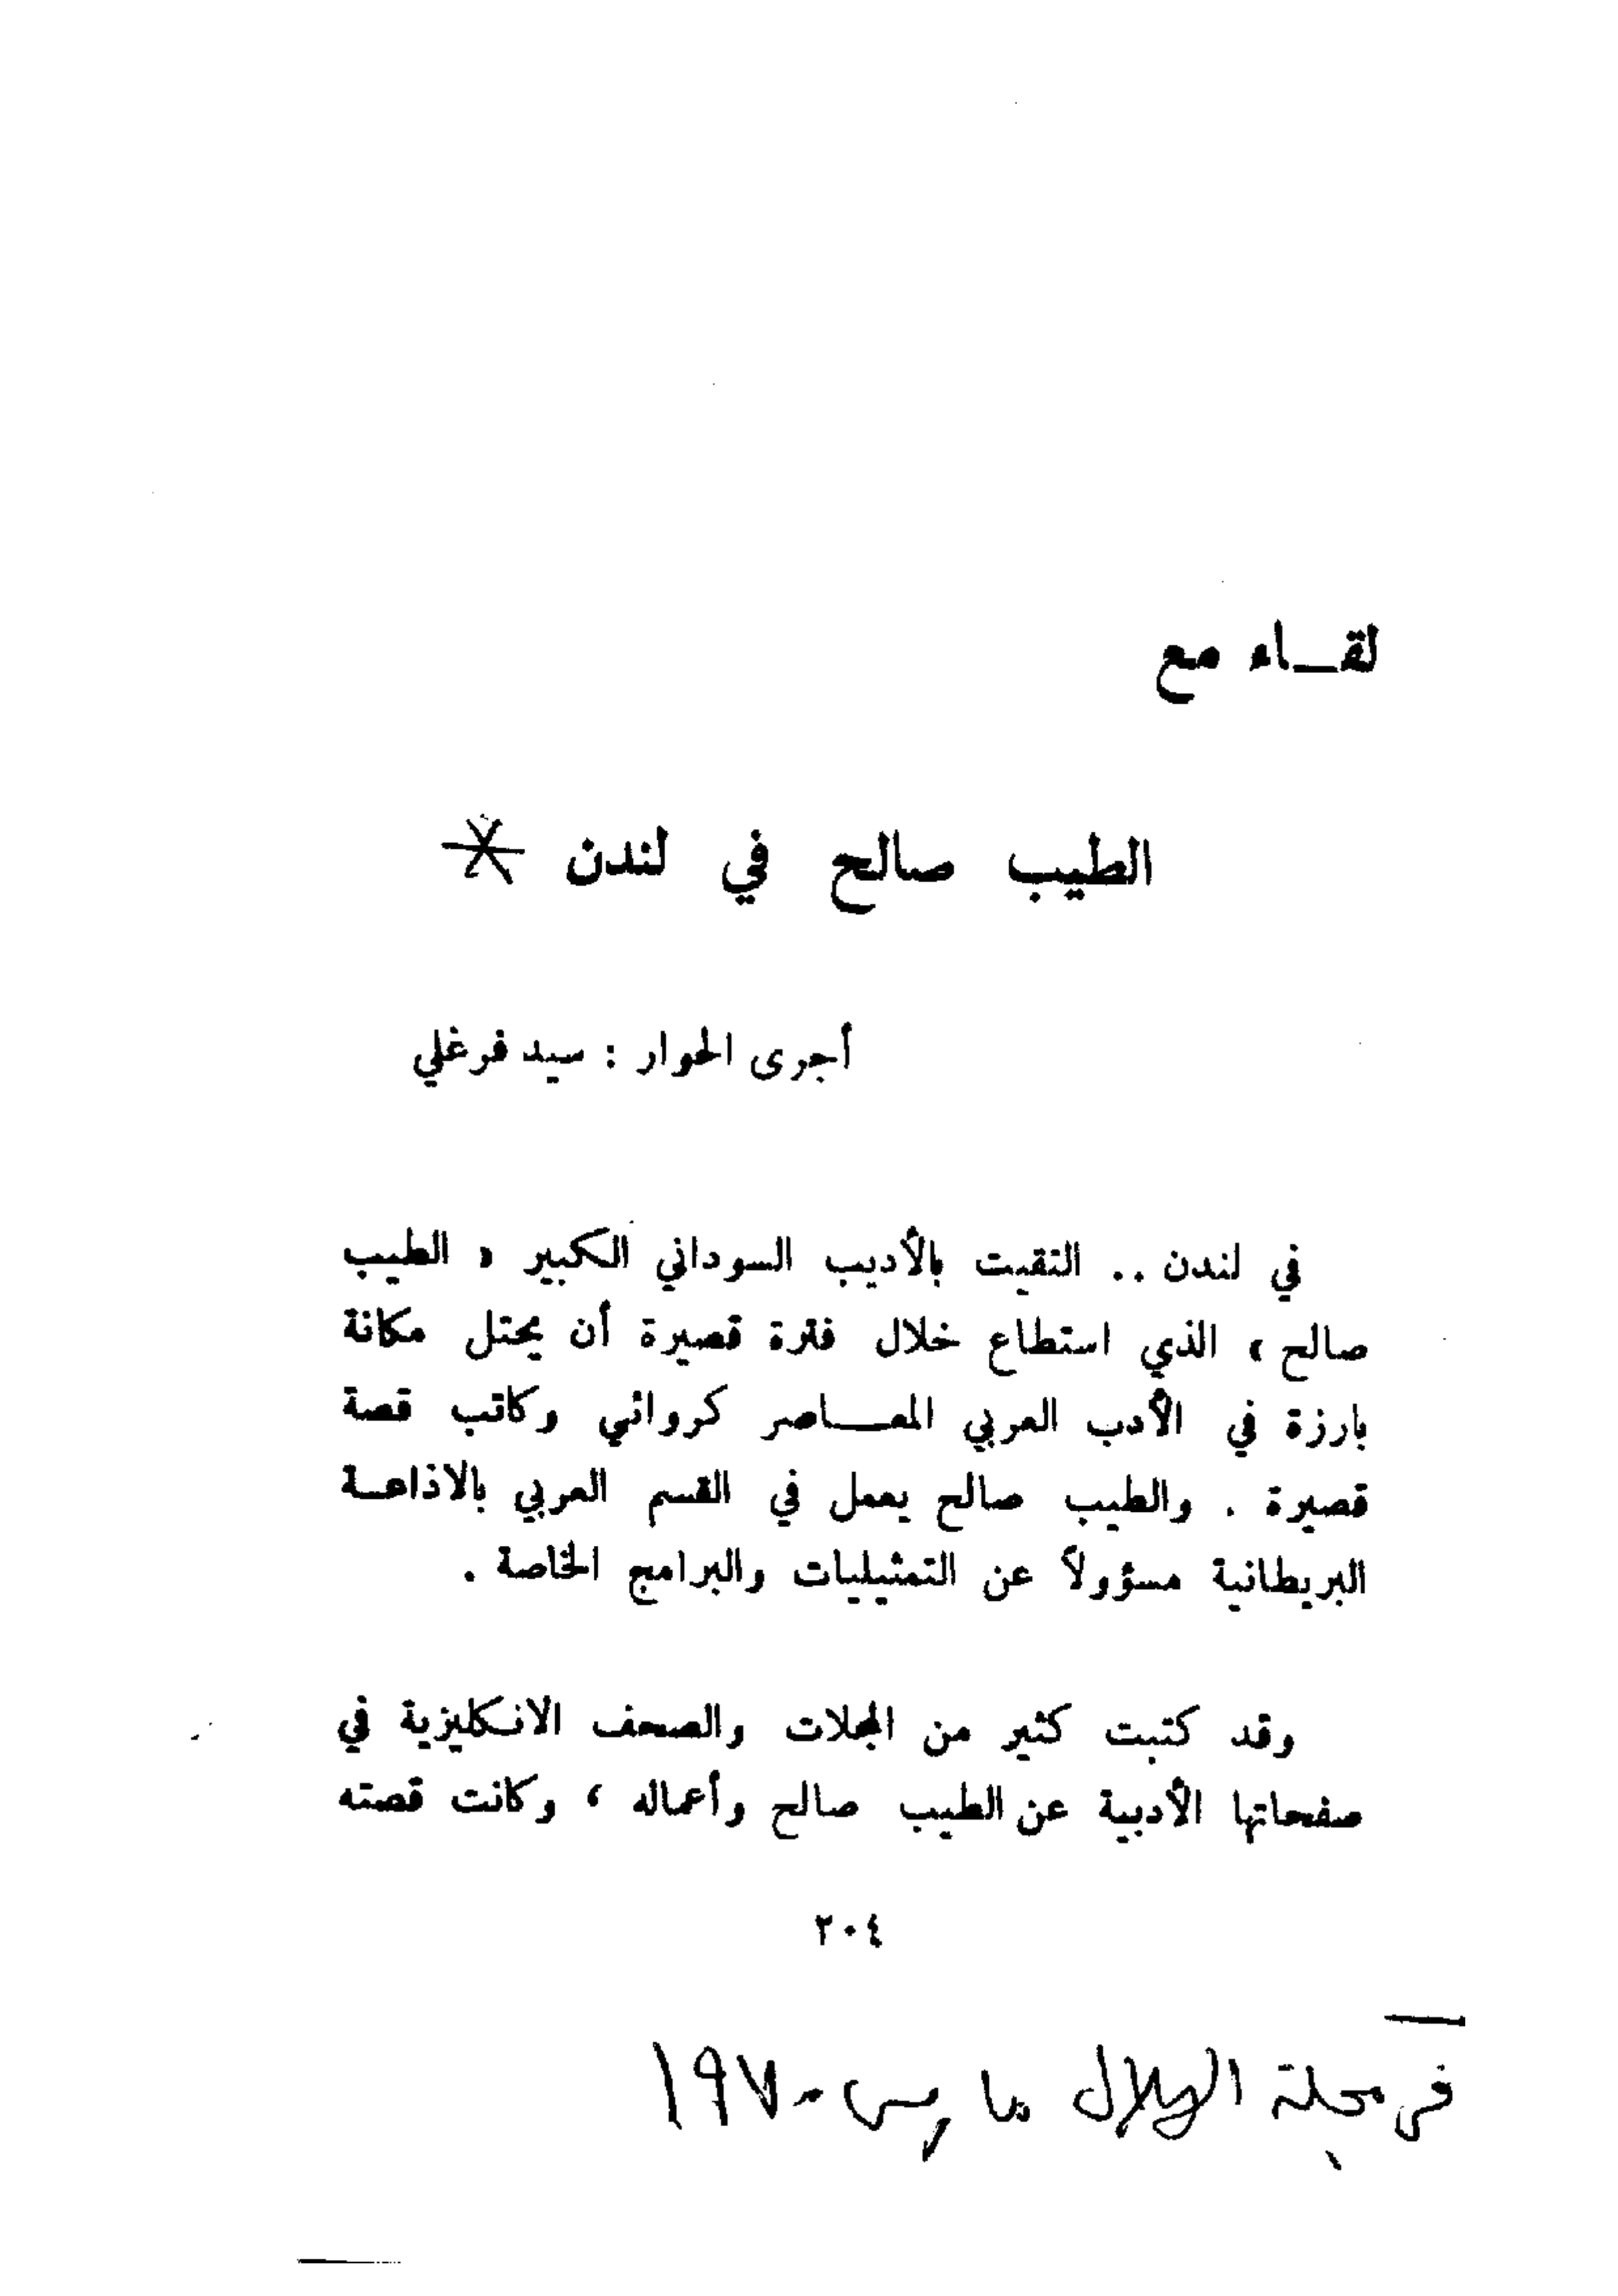 لقــاء مع
الطيب صالح في لندن *
أجرى الحوار : سيد فرغلي
في لندن .. التقيت بالأديب السوداني الكبير « الطيب
صالح » الذي استطاع خلال فترة قصيرة أن يحتل مكانة
بارزة في الأدب العربي المعــاصر كروائي وكاتب قصة
قصيرة . والطيب صالح يعمل في القسم العربي بالاذاعـة
البريطانية مسؤولاً عن التمثيليات والبرامج الخاصة .
وقد كتبت كثير من المجلات والصحف الانكليزية في
صفحاتها الأدبية عن الطيب صالح وأعماله ، وكانت قصته
٢٠٤
في مجلة الهلال مارس ١٩٧٠